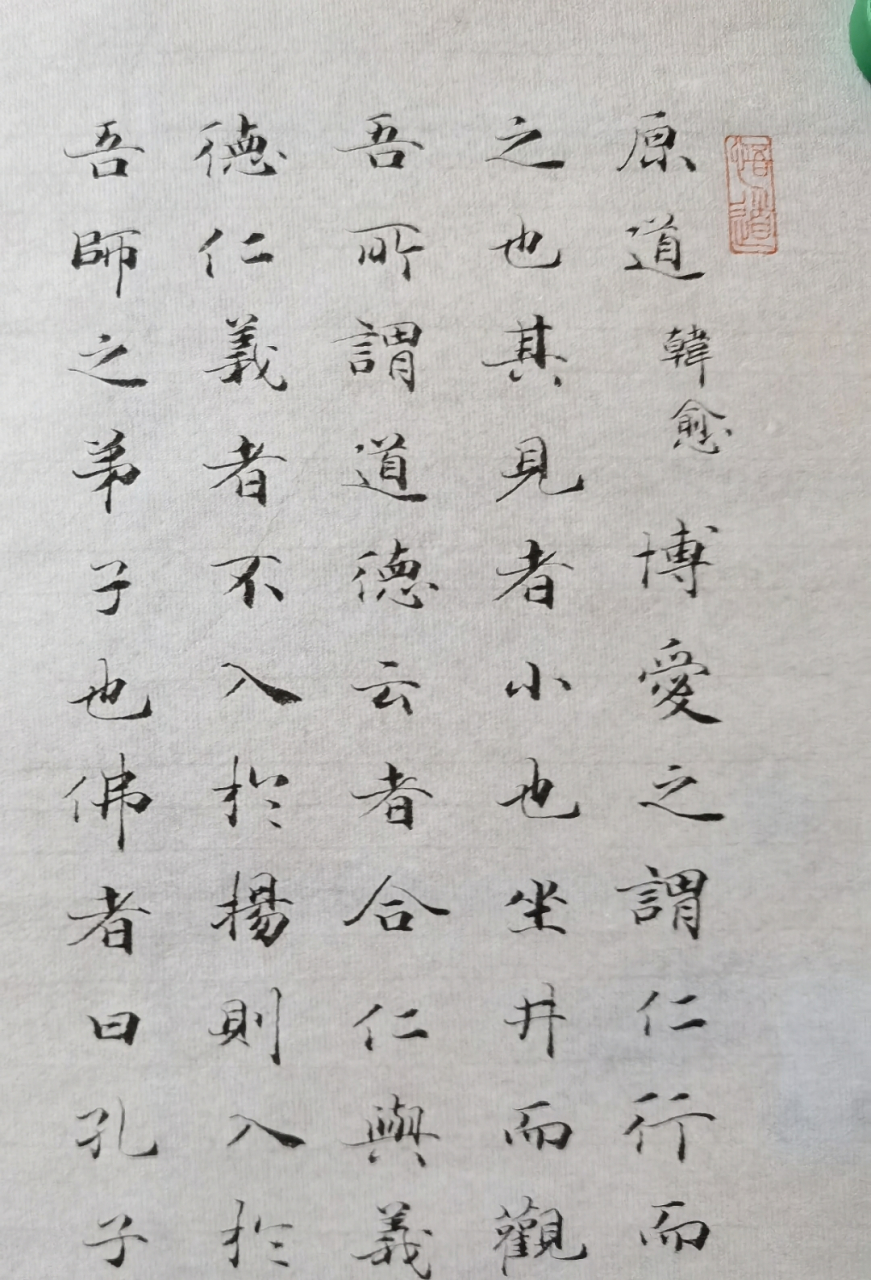 悟道
原道 韓愈 博愛之謂仁行而
之也其見者小也坐井而觀
吾所謂道德云者合仁與義
德仁義者不入於揚則入於
吾師之弟子也佛者曰孔子